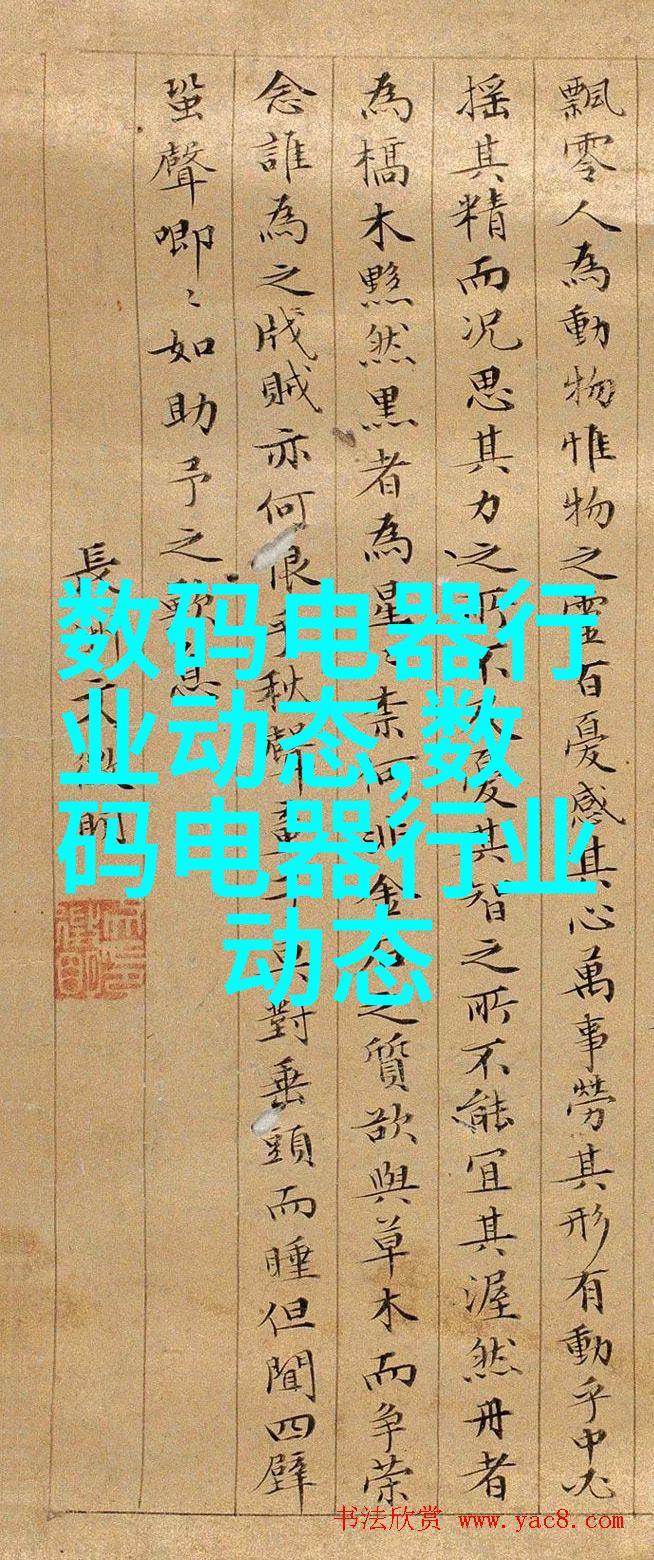 飄零人為動物惟物之靈百憂感其心萬事勞其形有動乎中必
搖其精而況思其力之所不憂其智之所不能宜其渥然丹者
為槁木黟然黑者為星〻柰何非金石之質欲與草木而爭榮
念誰為之戕賊亦何恨乎秋聲童子莫對垂頭而睡但聞四壁
蛩聲唧〻如助予之歎息
長洲文徵明
数码电器行
业动态,数
码电器行业
动态
书法欣赏 www.yac8.com